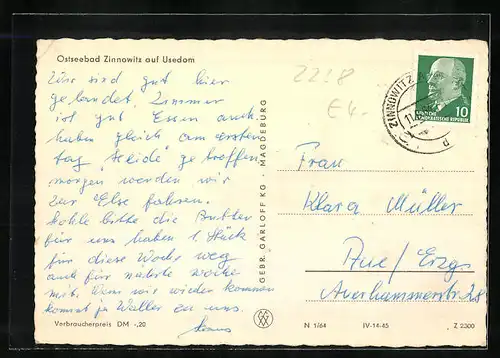 Ostseebad Zinnowitz auf Usedom
Wir sind gut hier
gelandet. Zimmer
ist gut Essen auch
haben gleich am ersten
tag "Heide" getroffen
morgen werden wir
zur Else fahren.
Hohle bitte die Butter
für uns haben 1. Stück
für diese Woche weg
auch für nächste woche
mit. Wenn wir wieder kommen
kommt ja Walter an uns.
Verbraucherpreis DM -,20
GEBR. GARLOFF KG · MAGDEBURG
2228
E 4.-
ZINNOWITZ
10
DEUTSCHE
DEMOKRATISCHE REPUBLIK
Frau
Klara Müller
Aue/Erzg
Auerhammerstr 28
N 1/64
IV-14-45
Z 2300